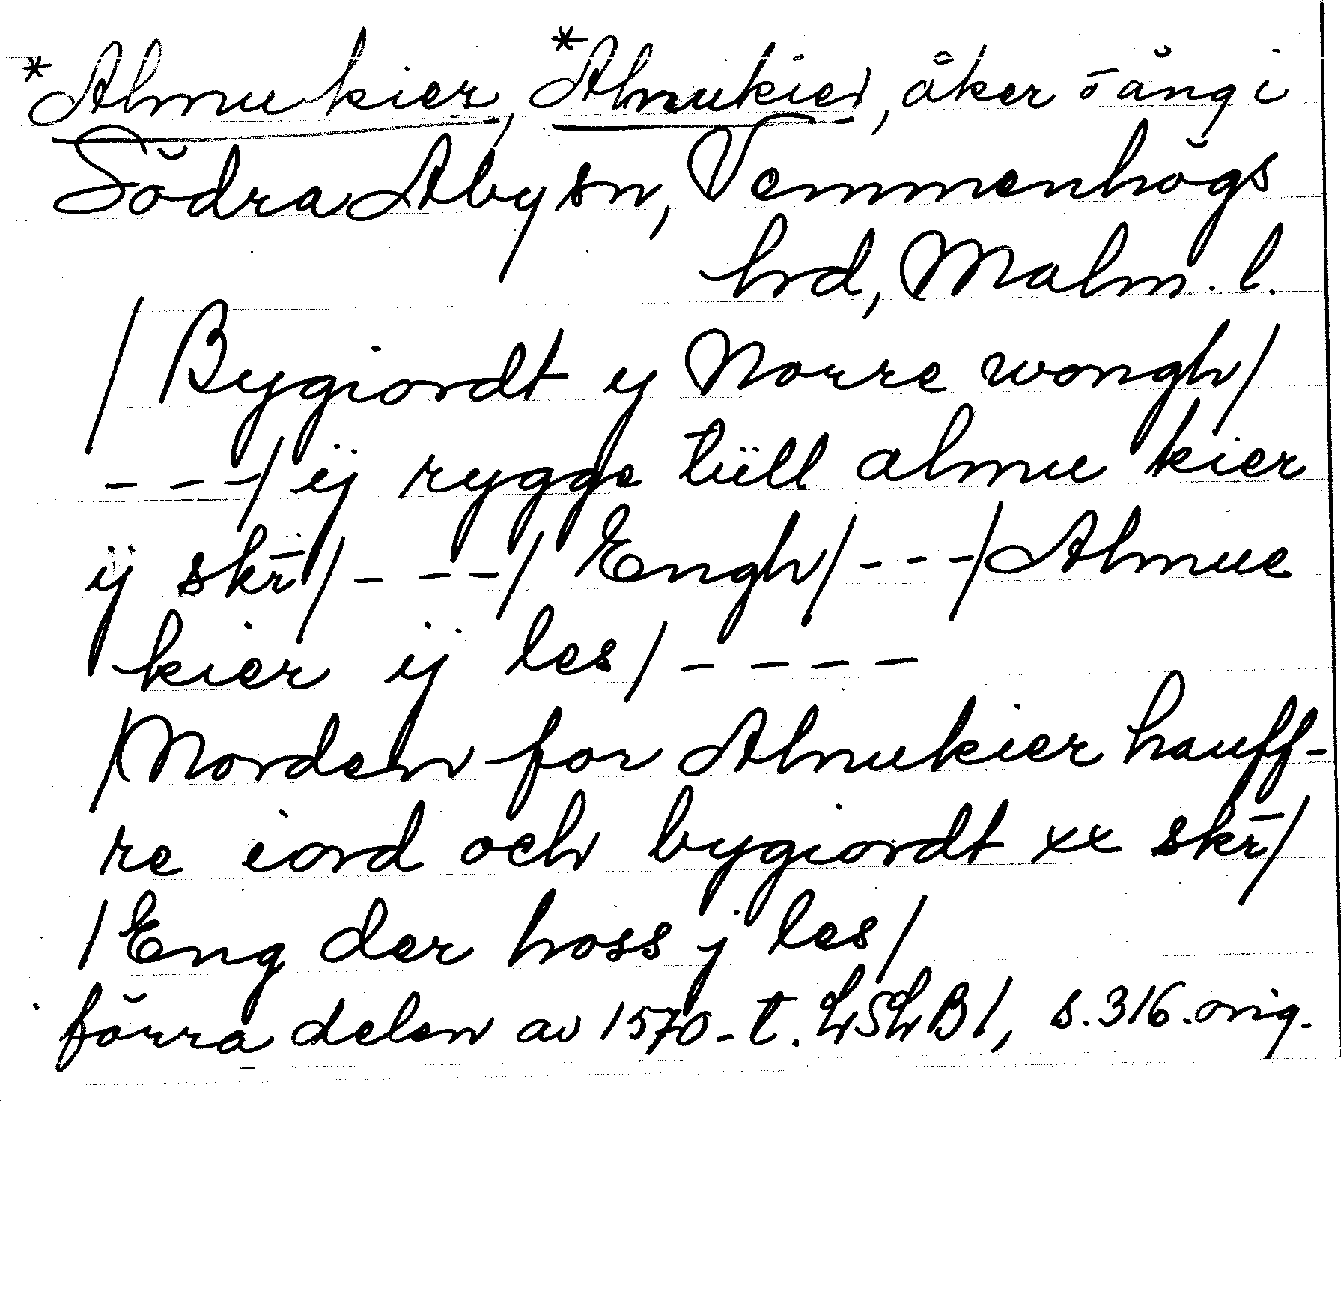 *Almu kier, *Almukier, åker o äng i
Södra Åby sn, Vemmenhögs
hrd, Malm. l.
/ Bygiordt y Norre wongh /
- - - / ij rygge tüll almu kier
ij skr̄ / - - - / Engh / - - - / Almue
kier ij les / - - - -
/ Norden for Almukier hauff-
re iord och bygiordt xx skr̄ /
/ Eng der hoss j les /
förra delen av 1570-t. LSLB 1, s. 316. orig.